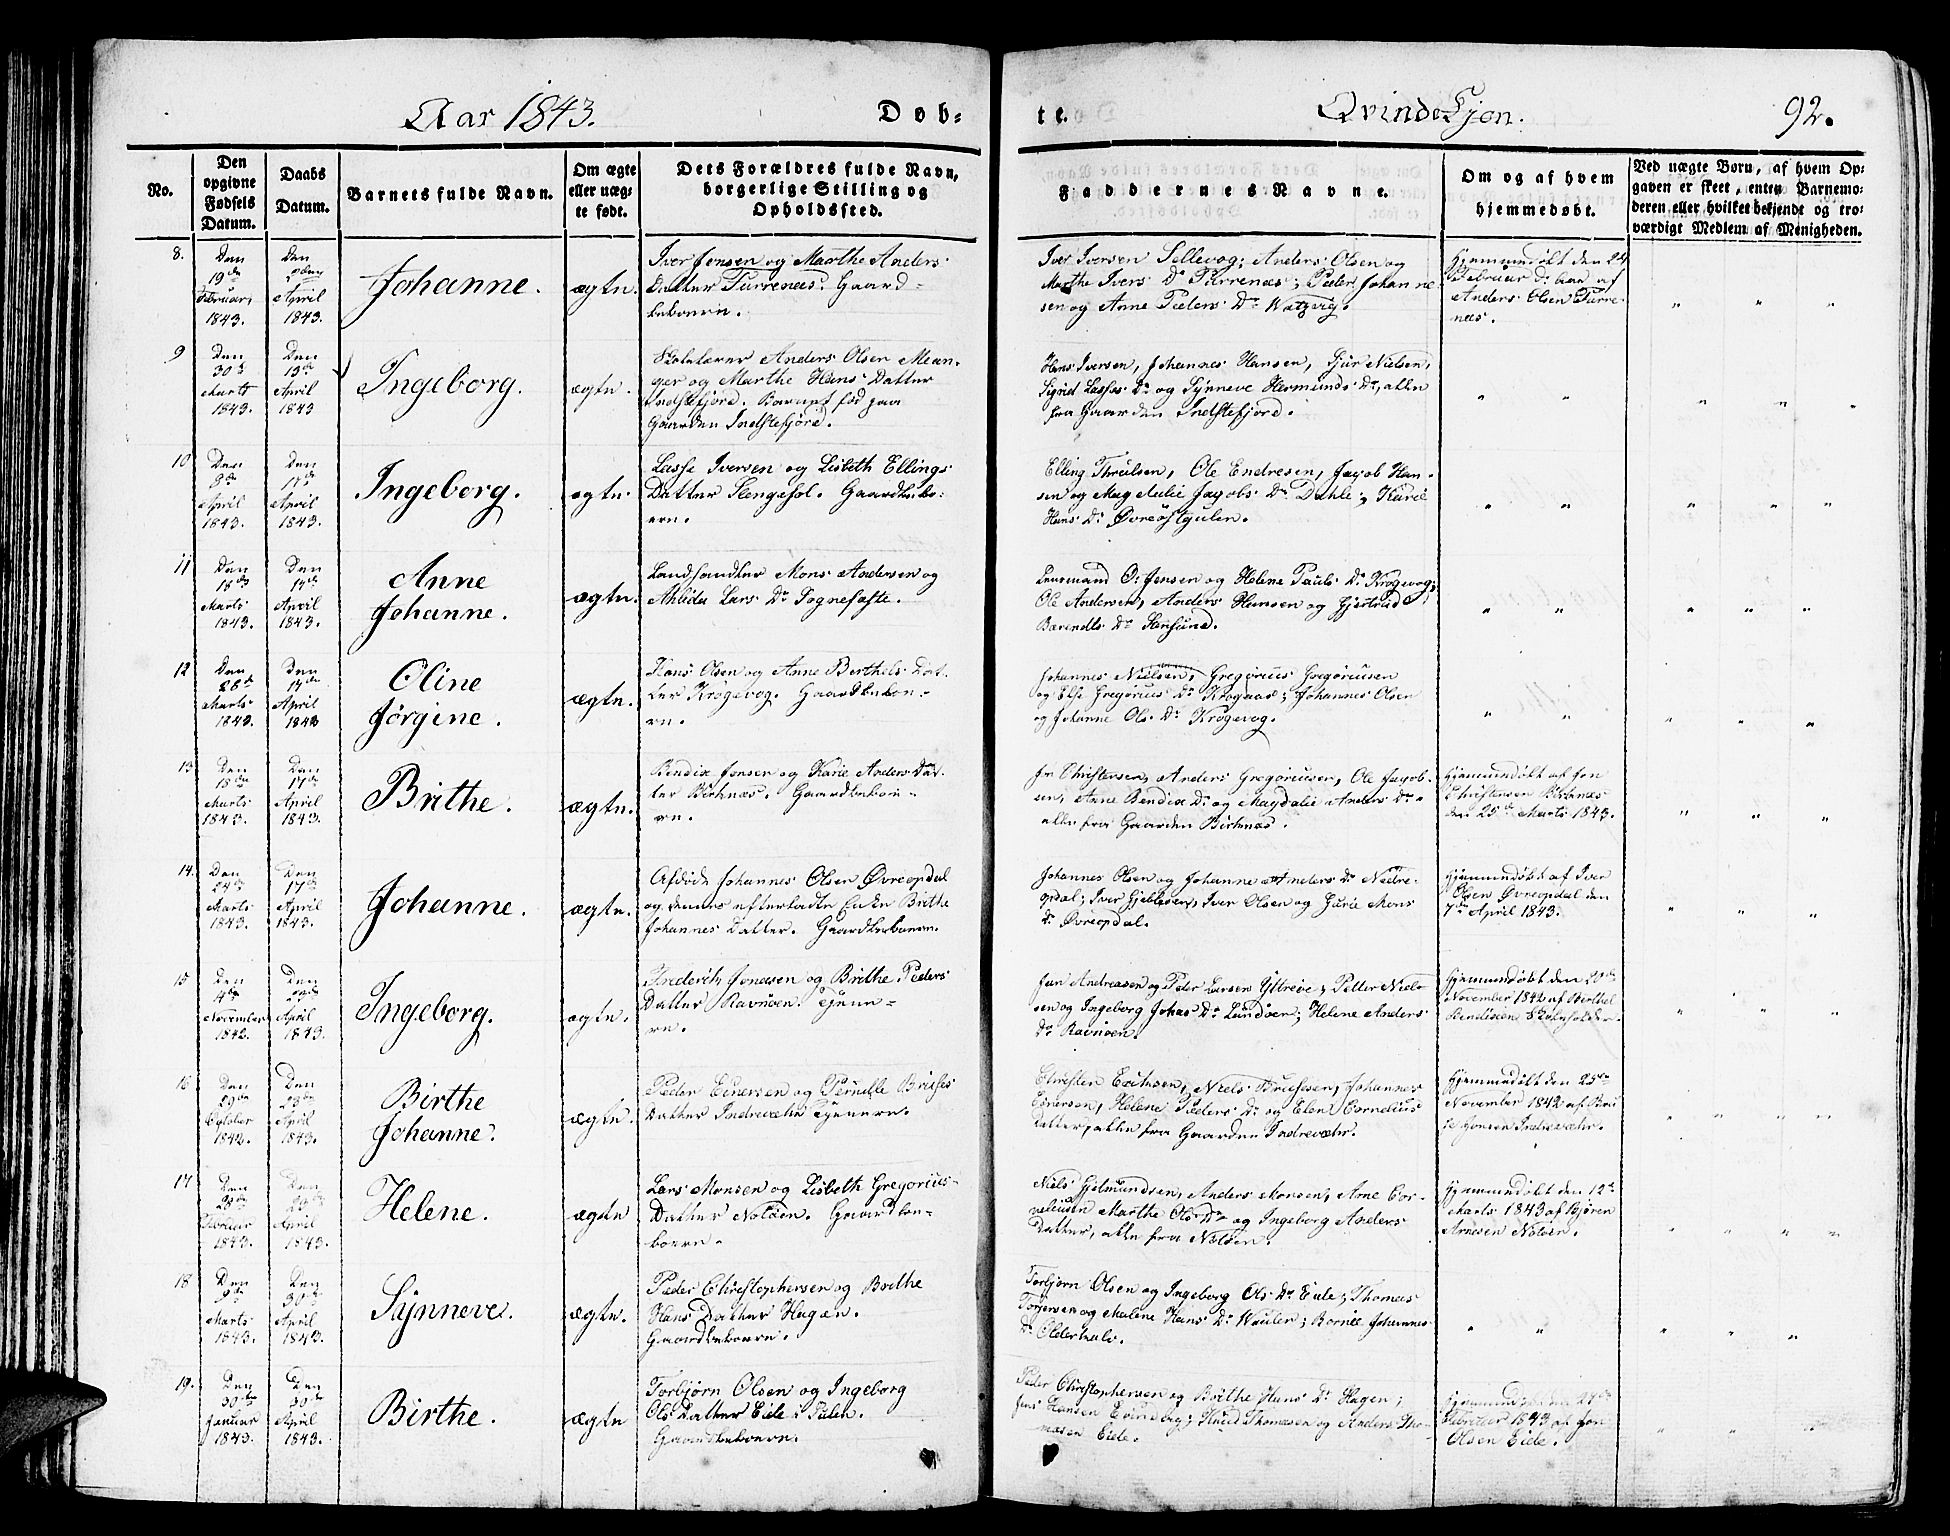 Aar 1843.
Døb-
te.
QvindeKjøn.
92.
No.
Den
opgivne
Fødsels
Datum.
Daabs
Datum.
Barnets fulde Navn.
Om ægte
eller uæg-
te født.
Dets Forældres fulde Navn,
borgerlige Stilling og
Opholdssted.
Faddernes Navne.
Om og af hvem
hjemmedøbt.
Ved uægte Børn, af hvem Op-
gaven er skeet, enten Barnemo-
deren eller hvilket bekjendt og tro-
værdigt Medlem af Menigheden.
8.
Den
19de
Februar,
1843.
Den
April
1843.
Johanne.
ægtn.
Iver Jensen og Marthe Anders
Datter Furrenæs. Gaard-
beboern.
Iver Iversen Sellevog; Anders Olsen og
Marthe Ivers Dr Furrenæs; Peder Johanne-
sen og Anne Peders Dr Watzvig.
Hjemmendøbt den 24
Februar d: Aar af
Anders Olsen Furre-
næs.
9
Den
30te
Marts
1843.
Den
13de
April
1843
Ingeborg.
ægtn.
Skolelærer Anders Olsen Mean-
ger og Marthe Hans Datter
Indstefjord. Barnet fød paa
Gaarden Indstefjord.
Hans Iversen, Johannes Hansen, Sjur Nielsen,
Sigrid Lasses Dr og Synneve Hermunds Dr, alle
fra Gaarden Indstefjord.
10
Den
8de
April
1843.
Den
17de
April
1843.
Ingeborg.
ægtn.
Lasse Iversen og Lisbeth Ellings
Datter Stengesol. Gaardbebo-
ern.
Elling Thrulsen, Ole Endresen, Jacob Han-
sen og Magdalie Jacobs Dr Dahle; Karie
Hans Dr Øvreøstgulen.
11
Den
18de
Marts
1843.
Den
17de
April
1843.
Anne
Johanne.
ægtn.
Landhandler Mons Andersen og
Ahlida Lars Dr Sognefæste.
Lensmand O: Jensen og Helene Pauls Dr Krogevog;
Ole Andersen, Anders Hansen og Gjertrud
Berendts Dr Steensund.
12
Den
26de
Marts
1843.
Den
17de
April
1843
Oline
Jørgine.
ægtn.
Hans Olsen og Anne Berthels Dat-
ter Krogevog. Gaardbeboe-
rn.
Johannes Nielsen, Gregorius Gregoriusen
og Else Gregorius Dr Krogaas; Johannes Olsen
og Johanne Ols Dr Krogevog.
13
Den
18de
Marts
1843.
Den
17de
April
1843.
Brithe.
ægtn.
Bendix Jensen og Karie Anders Dat-
ter Birknæs. Gaardbeboe-
rn.
Jn Christensen, Anders Gregoriusen, Ole Jacob-
sen, Anne Bendix Dr og Magdalie Anders Dr
alle fra Gaarden Birknæs.
Hjemmendøbt af Jon
Christensen Birknæs
den 25de Marts 1843.
14.
Den
24de
Marts
1843.
Den
17de
April
1843.
Johanne.
ægtn.
Afdøde Johannes Olsen Øvreopdal
og dennes efterladte Enke Brithe
Johannes Datter. Gaardbeboern.
Johannes Olsen og Johanne Anders Dr Nedre-
opdal; Iver Gjeblesen, Iver Olsen og Karie Mons
Dr Øvreopdal.
Hjemmendøbt af Iver
Olsen Øvreopdal den
7de April 1843.
15
Den
4de
November
1842.
Den
April
1843.
Ingeborg.
ægtn.
Frederik Jonasen og Brithe Peders
Datter Ravnøen. Tjenn-
rn.
Jan Andreasen og Peder Larsen Yttreøe; Petter Niel-
sen og Ingeborg Johas Dr Lundøen; Helene Anders
Dr Ravnøen.
Hjemmendøbt den 20de
November 1842 af Berthel
Bendixen Skolholder.
16
Den
29de
October
1842.
Den
23de
April
1843.
Birthe
Johanne.
ægtn.
Peder Einersen og Pernille Brises
Datter Indrevæhr Tjenern.
Christen Erichsen, Niels Brusesen, Johannes
Einersen, Helene Peders Dr og Elen Cornelius
Datter, alle fra Gaarden Indrevæhr.
Hjemmendøbt den 25de
November 1842 af Bri
se Jonsen Indrevæhr.
17
Den
28de
Februar
1843.
Den
23de
April
1843.
Helene.
ægtn
Lars Monsen og Lisbeth Gregorius-
Datter Notøen. Gaardbe-
boern.
Niels Hjelmundsen, Anders Monsen, Arne Cor-
neliusen Marthe Ols Dr og Ingeborg Anders
Datter, alle fra Notøen.
Hjemmendøbt den 12te
Marts 1843 af Bjøren
Arnesen Notøen.
18
Den
9de
Marts
1843.
Den
30de
April
1843.
Synneve.
ægtn.
Peder Christophersen og Brithe
Hans Datter Hagen.
Gaardbeboern.
Torbjørn Olsen og Ingeborg Ols Dr Eide; Thomas
Torgersen og Malene Hans Dr Waulen; Bornie Johannes
Dr Olderkalv.
19.
Den
30te
Januar
1843.
Den
30te
April
1843.
Birthe.
ægtn
Torbjørn Olsen og Ingeborg
Ols Datter Eide i Pulen.
Gaardbeboern.
Peder Christophersen og Brithe Hans Dr Hagen;
Jens Hansen Evindvig; Knud Thomasen og Anders Tho-
masen Eide.
Hjemmendøbt den 27de
Februar 1843 af Jon
Olsen Eide.